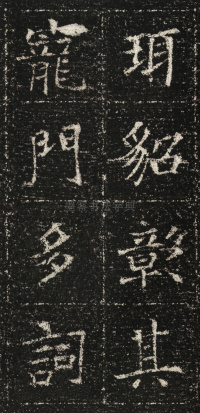 珥貂彰其
寵門多詞